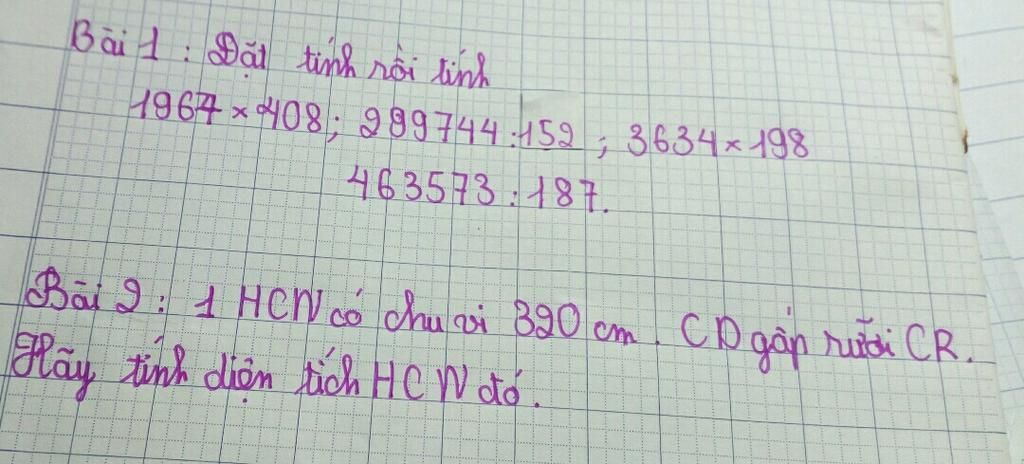 Bài 1 : Đặt tính rồi tính
1967 × 408 ; 299744 : 152 ; 3634 × 198
463573 : 187.
Bài 2 : 1 HCN có chu vi 320 cm. CD gấp rưỡi CR.
Hãy tính diện tích HCN đó.